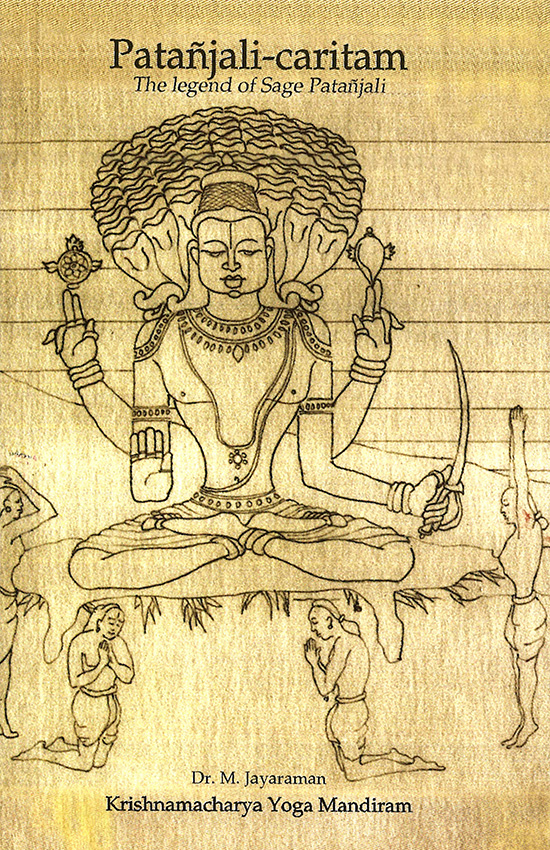 Patañjali-caritam
The legend of Sage Patañjali
Dr. M. Jayaraman
Krishnamacharya Yoga Mandiram